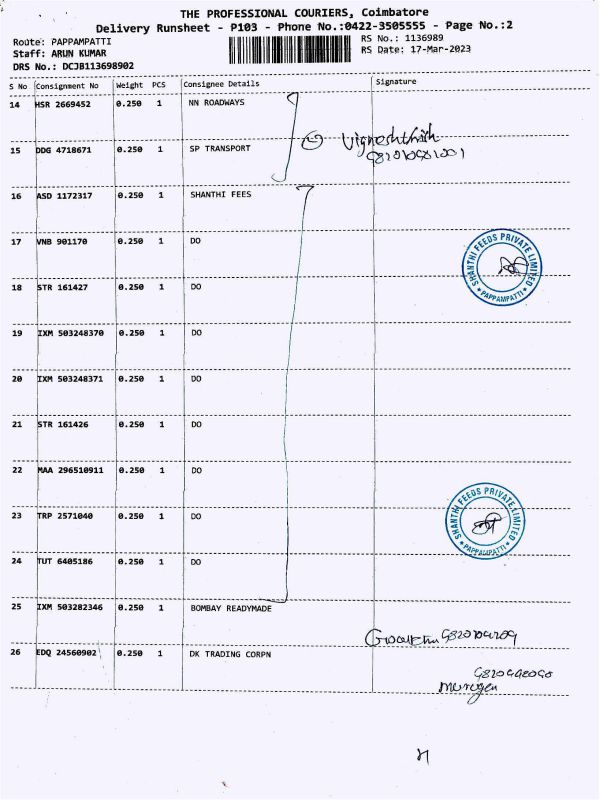 THE PROFESSIONAL COURIERS, Coimbatore
Delivery Runsheet - P103 - Phone No.:0422-3505555 - Page No.:2
Route: PAPPAMPATTI RS No.: 1136989
Staff: ARUN KUMAR RS Date: 17-Mar-2023
DRS No.: DCJB113698902
S No Consignment No Weight PCS Consignee Details Signature
14 HSR 2669452 0.250 1 NN ROADWAYS
15 DDG 4718671 0.250 1 SP TRANSPORT
16 ASD 1172317 0.250 1 SHANTHI FEES
17 VNB 901170 0.250 1 DO
SHANTHI FEEDS PRIVATE LIMITED
PAPPAMPATTI
18 STR 161427 0.250 1 DO
19 IXM 503248370 0.250 1 DO
20 IXM 503248371 0.250 1 DO
21 STR 161426 0.250 1 DO
22 MAA 296510911 0.250 1 DO
23 TRP 2571040 0.250 1 DO
SHANTHI FEEDS PRIVATE LIMITED
PAPPAMPATTI
24 TUT 6405186 0.250 1 DO
25 IXM 503282346 0.250 1 BOMBAY READYMADE
26 EDQ 24560902 0.250 1 DK TRADING CORPN